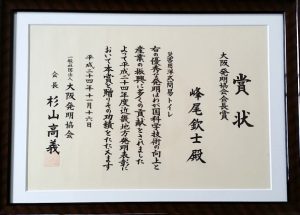 賞状
大阪発明協会会長賞
災害用洋式簡易トイレ
峰尾欽士殿
右の優秀な発明はわが国科学技術の向上と
産業の振興に多くの貢献をされました
よって平成二十四年度近畿地方発明表彰に
おいて本賞を贈りその功績をたたえます
平成二十四年十一月十六日
一般社団法人大阪発明協会
会長杉山高義